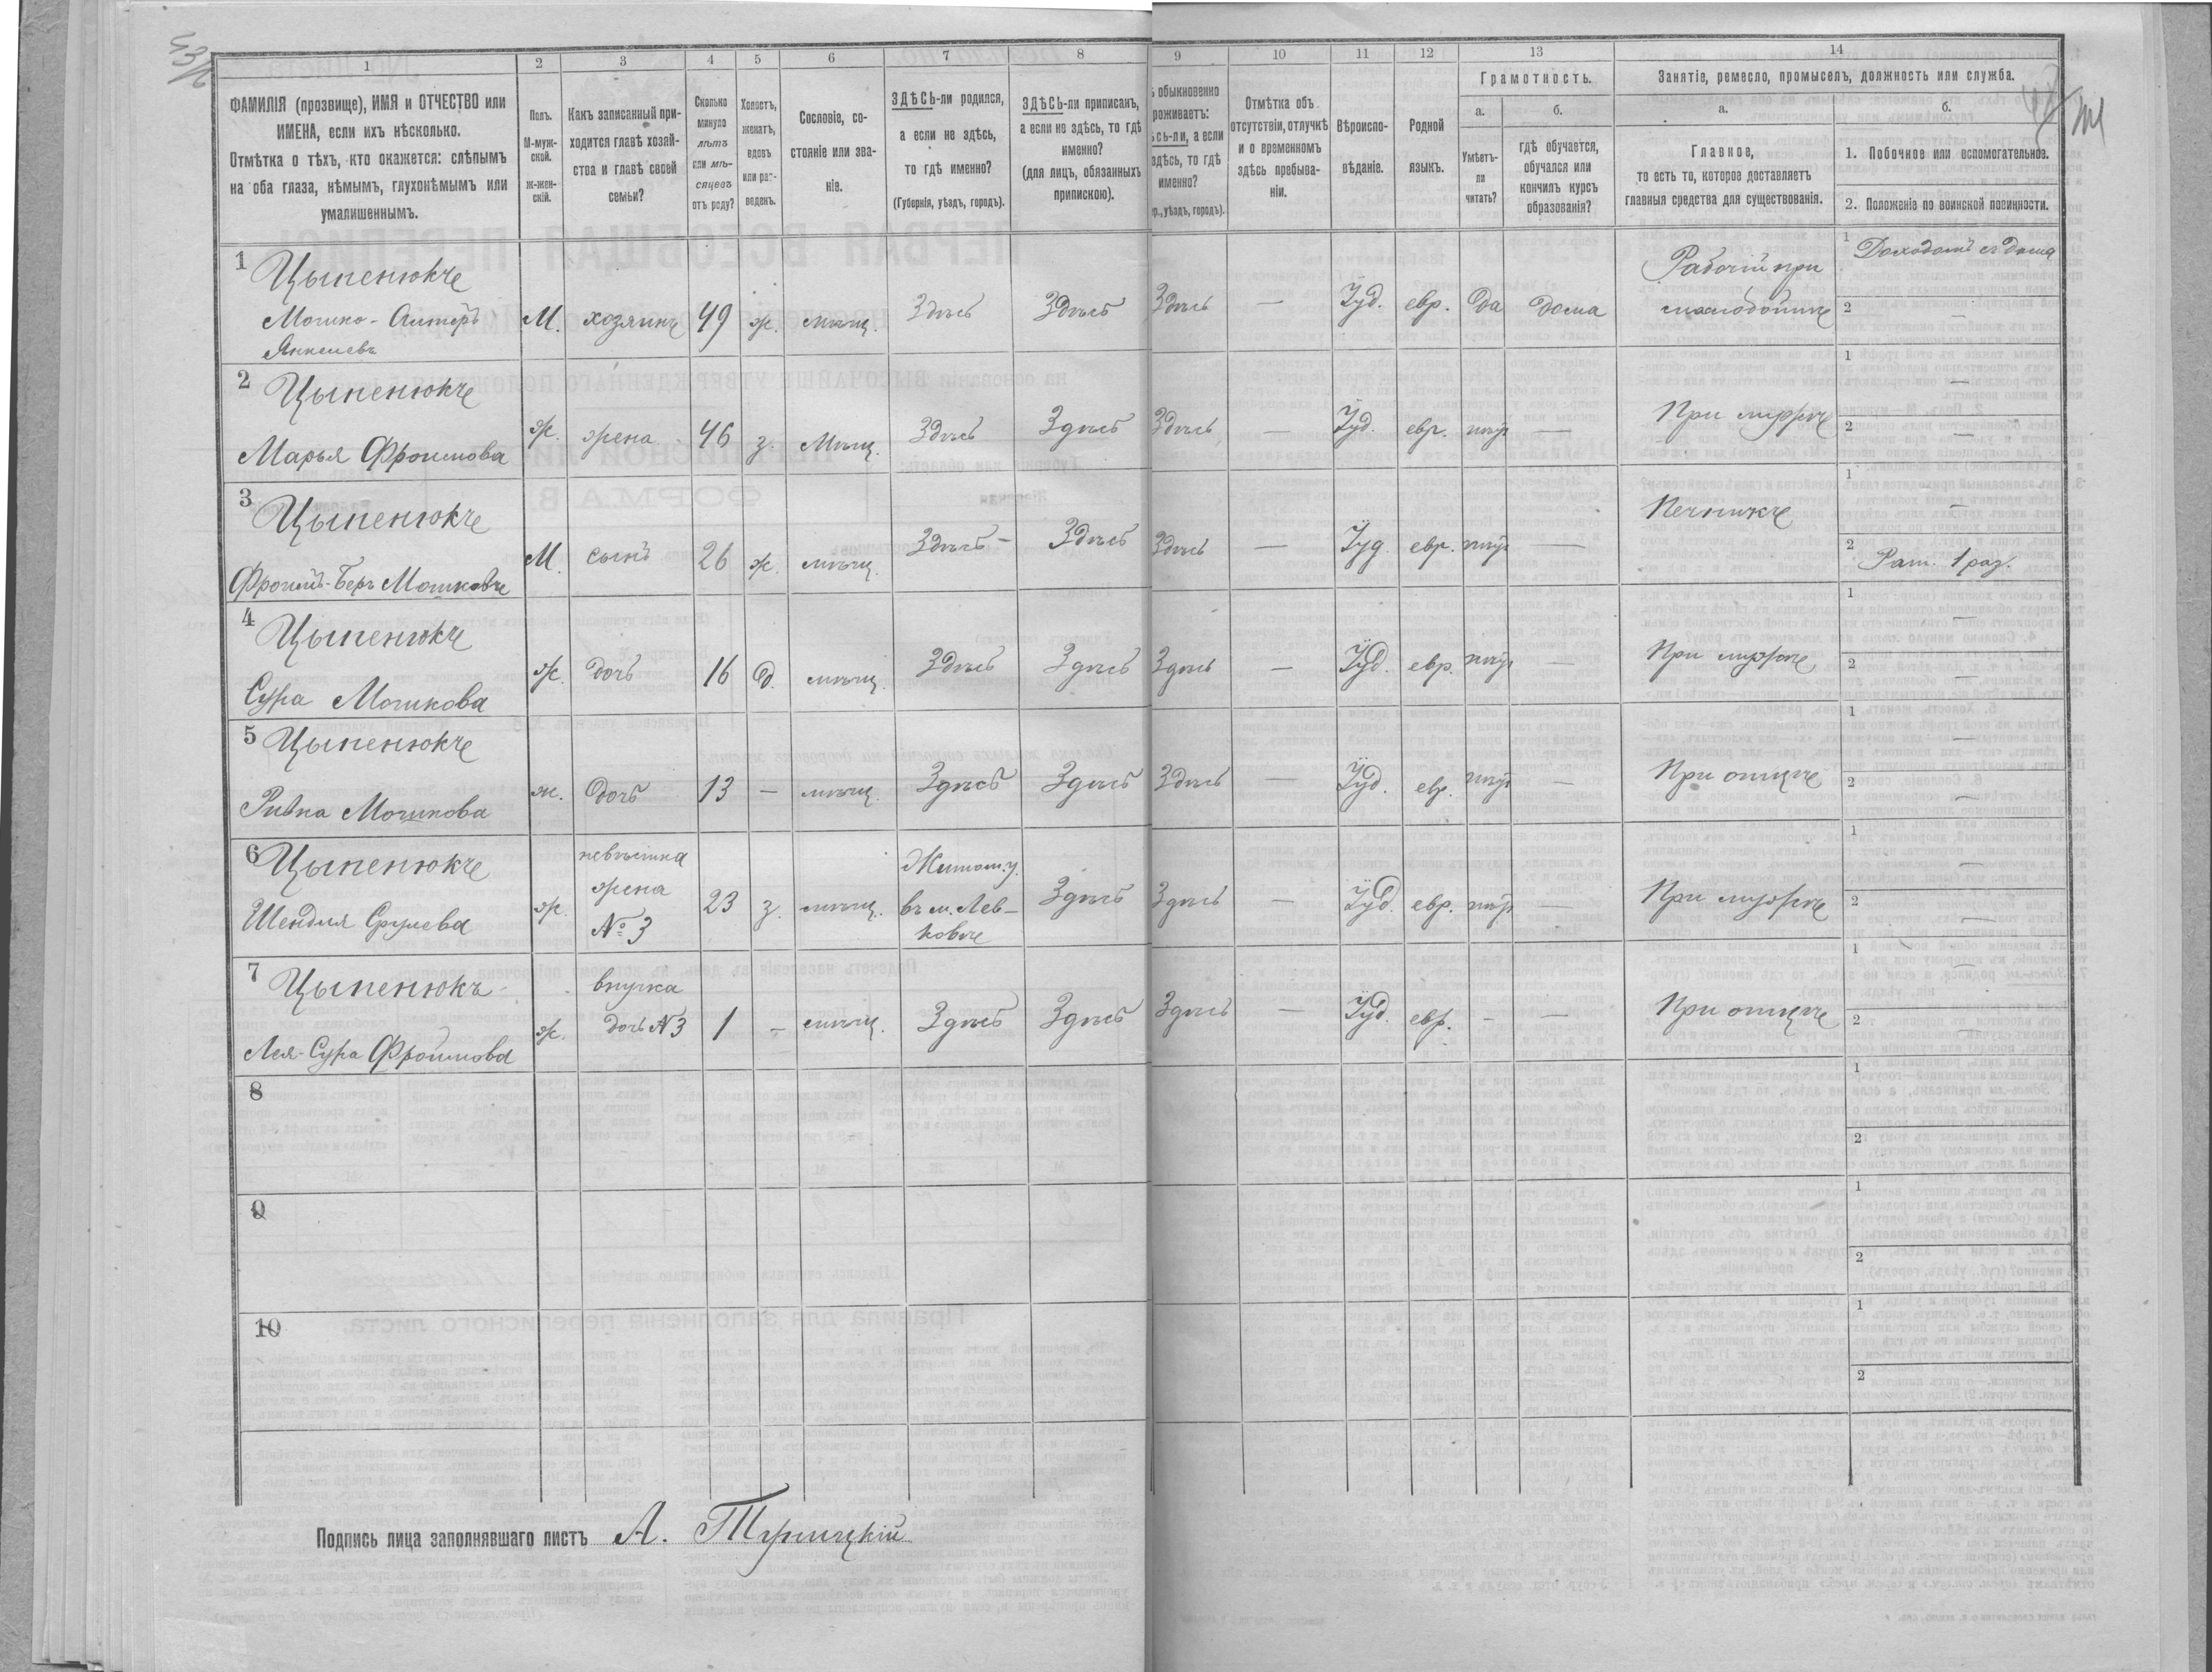 1 2 3 4 5 6 7 8 9 10 11 12 13 14
ФАМИЛІЯ (прозвище), ИМЯ и ОТЧЕСТВО или
ИМЕНА, если ихъ нѣсколько.
Отмѣтка о тѣхъ, кто окажется: слѣпымъ
на оба глаза, нѣмымъ, глухонѣмымъ или
умалишеннымъ.
Полъ.
М-муж-
ской.
ж-жен-
скій.
Какъ записанный при-
ходится главѣ хозяй-
ства и главѣ своей
семьи?
Сколько
минуло
лѣтъ
или мѣ-
сяцевъ
отъ роду?
Холостъ,
женатъ,
вдовъ
или раз-
веденъ.
Сословіе, со-
стояніе или зва-
ніе.
ЗДѢСЬ-ли родился,
а если не здѣсь,
то гдѣ именно?
(Губернія, уѣздъ, городъ).
ЗДѢСЬ-ли приписанъ,
а если не здѣсь, то гдѣ
именно?
(для лицъ, обязанныхъ
припискою).
ѣ обыкновенно
роживаетъ:
ѣсь-ли, а если
здѣсь, то гдѣ
именно?
р., уѣздъ, городъ).
Отмѣтка объ
отсутствіи, отлучкѣ
и о временномъ
здѣсь пребыва-
ніи.
Вѣроиспо-
вѣданіе.
Родной
языкъ.
Грамотность.
а.
Умѣетъ-
ли
читать?
б.
гдѣ обучается,
обучался или
кончилъ курсъ
образованія?
Занятіе, ремесло, промыселъ, должность или служба.
а.
Главное,
то есть то, которое доставляетъ
главныя средства для существованія.
б.
1. Побочное или вспомогательное.
2. Положеніе по воинской повинности.
1 Цыпенюкъ
Мошко-Алтеръ
Янкелевъ
М. хозяинъ 49 ж. мѣщ. Здѣсь Здѣсь Здѣсь — Іуд. евр. да дома
Рабочій при
1 Доходомъ съ дома
2 —
2 Цыпенюкъ
Марья Фроимова
ж. жена 46 з. мѣщ. Здѣсь Здѣсь Здѣсь — Іуд. евр. нѣт — При мужѣ
1 —
2 —
3 Цыпенюкъ
Фроимъ-Беръ Мошковъ
М. сынъ 26 ж. мѣщ. Здѣсь Здѣсь Здѣсь — Іуд евр. нѣт — Печникъ
1 —
2 Рат. 1 раз.
4 Цыпенюкъ
Сура Мошкова
ж. дочь 16 д. мѣщ. Здѣсь Здѣсь Здѣсь — Іуд. евр. нѣт — При мужѣ
1 —
2 —
5 Цыпенюкъ
Ривка Мошкова
ж. дочь 13 — мѣщ. Здѣсь Здѣсь Здѣсь — Іуд. евр. нѣт — При отцѣ
1 —
2 —
6 Цыпенюкъ
Шендля Срулева
ж.
невѣстка
жена
№ 3
23 з. мѣщ.
Житом. у.
въ м. Лев-
ковѣ
Здѣсь Здѣсь — Іуд. евр. нѣт — При мужѣ
1 —
2 —
7 Цыпенюкъ
Лея-Сура Фроимова
ж.
внучка
дочь № 3
1 — мѣщ. Здѣсь Здѣсь Здѣсь — Іуд. евр. — — При отцѣ
1 —
2 —
8
1
2
9
1
2
10
1
2
Подпись лица заполнявшаго листъ А.